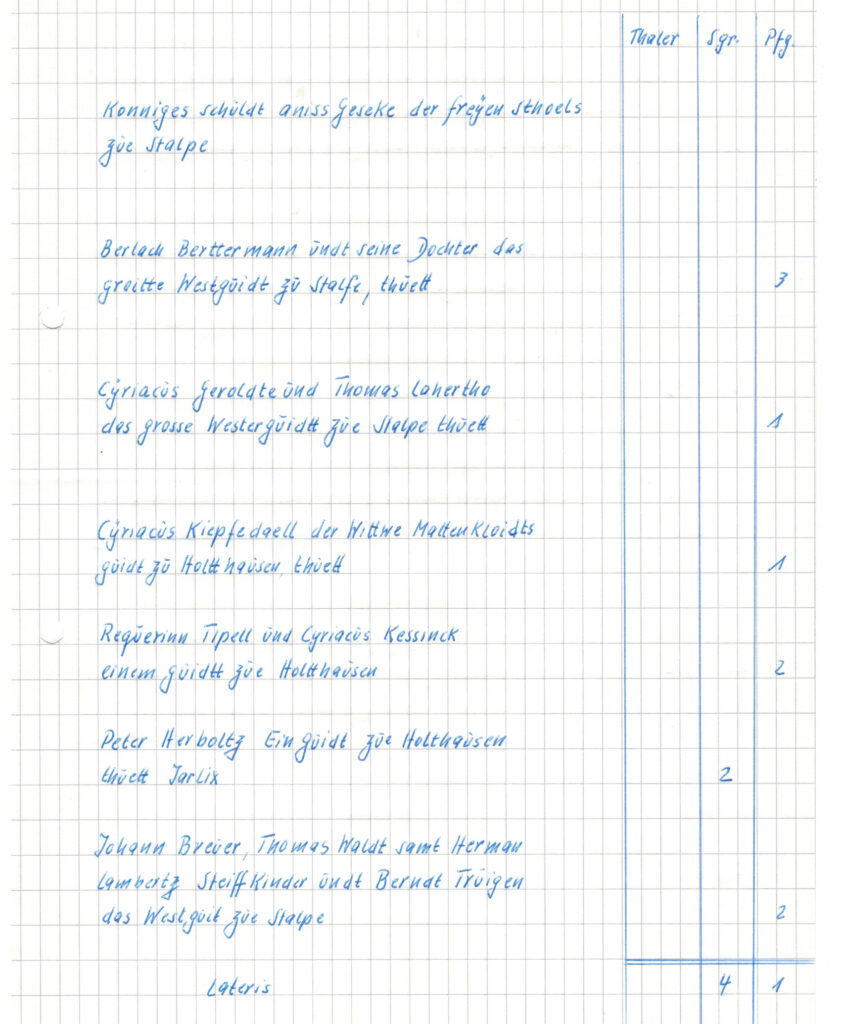 Thaler Sgr. Pfg.
Konniges schüldt aniss Geseke der freÿen sthoels
züe Stalpe
Berlach Berttermann ündt seine Dochter das
groitte Westgüidt zü Stalfe, thüett 3
Cÿriacüs Geroldte ünd Thomas Lahertho
das grosse Westergüidtt züe Stalpe thüett 1
Cÿriacüs Kiepfedaell der Wittwe Mattenkloidts
güidt zü Holtthaüsen, thüett 1
Reqüerinn Tipell ünd Cyriacüs Kessinck
einem güidtt züe Holtthaüsen 2
Peter Herboltz Ein güidt züe Holthaüsen
thüett Jarlix 2
Johann Breüer, Thomas Waldt samt Herman
Lambertz Steiff Kinder ündt Berndt Trüigen
das Westgüit züe Stalpe 2
Lateris 4 1